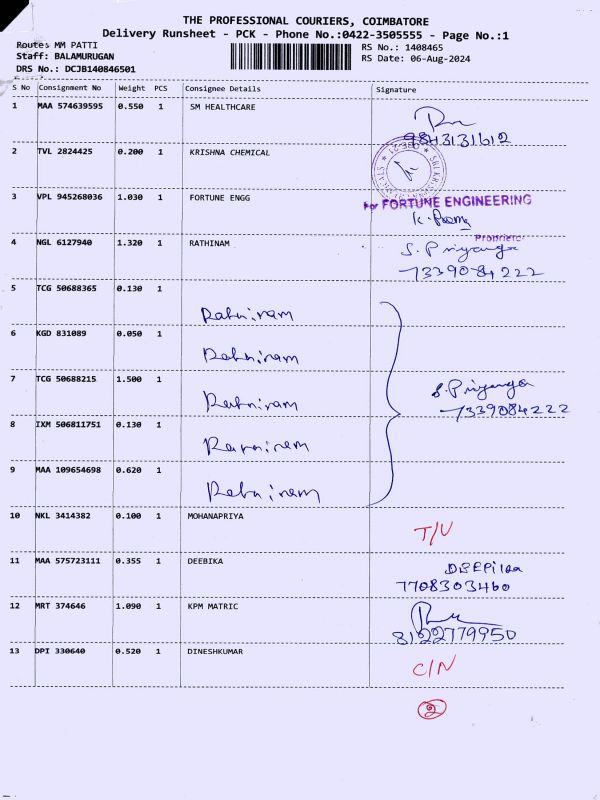 THE PROFESSIONAL COURIERS, COIMBATORE
Delivery Runsheet - PCK - Phone No.:0422-3505555 - Page No.:1
Routes MM PATTI
Staff: BALAMURUGAN
DRS No.: DCJB140846501
RS No.: 1408465
RS Date: 06-Aug-2024
S No Consignment No Weight PCS Consignee Details Signature
1 MAA 574639595 0.550 1 SM HEALTHCARE
9843131612
2 TVL 2824425 0.200 1 KRISHNA CHEMICAL
3 VPL 945268036 1.030 1 FORTUNE ENGG
For FORTUNE ENGINEERING
Proprietor
4 NGL 6127940 1.320 1 RATHINAM S. Priyanga
7339084222
5 TCG 50688365 0.130 1
Rathniram
6 KGD 831089 0.050 1
Rathniram
7 TCG 50688215 1.500 1
Rathniram
S. Priyanga
7339084222
8 IXM 506811751 0.130 1
Rathniram
9 MAA 109654698 0.620 1
Rathniram
10 NKL 3414382 0.100 1 MOHANAPRIYA
T/U
11 MAA 575723111 0.355 1 DEEBIKA
7708303460
12 MRT 374646 1.090 1 KPM MATRIC
8122779950
13 DPI 330640 0.520 1 DINESHKUMAR
C/N
2